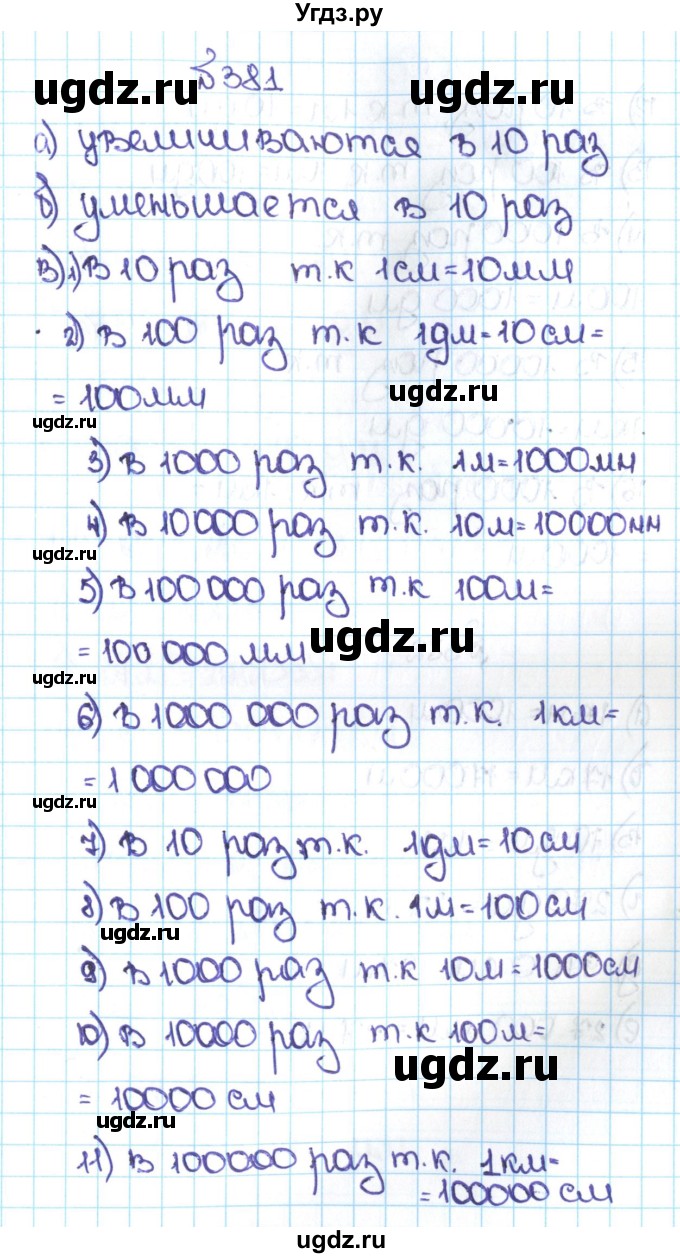 Угдз.ру
№381
а) увеличиваются в 10 раз
б) уменьшается в 10 раз
в) 1) в 10 раз т.к 1см=10мм
2) в 100 раз т.к 1дм=10см=
=100мм
3) в 1000 раз т.к. 1м=1000мм
4) в 10000 раз т.к. 10м=10000мм
5) в 100 000 раз т.к 100м=
=100 000 мм
6) в 1000 000 раз т.к. 1км=
=1 000 000
7) в 10 раз т.к. 1дм=10см
8) в 100 раз т.к. 1м=100см
9) в 1000 раз т.к 10м=1000см
10) в 10000 раз т.к 100м=
=10000 см
11) в 100000 раз т.к. 1км=
=100000 см
ugdz.ru
ugdz.ru
ugdz.ru
ugdz.ru
ugdz.ru
ugdz.ru
ugdz.ru
ugdz.ru
ugdz.ru
ugdz.ru
ugdz.ru
ugdz.ru
ugdz.ru
ugdz.ru